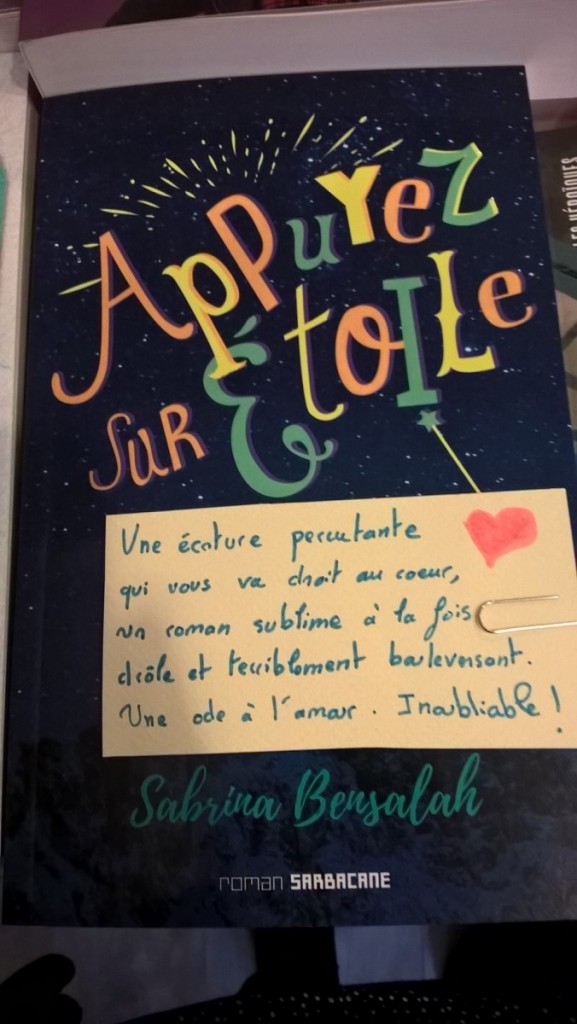 APPUYEZ
SUR ÉTOILE
Une écriture percutante
qui vous va droit au coeur,
un roman sublime à la fois
drôle et terriblement bouleversant.
Une ode à l'amour. Inoubliable !
Sabrina Bensalah
roman SARBACANE